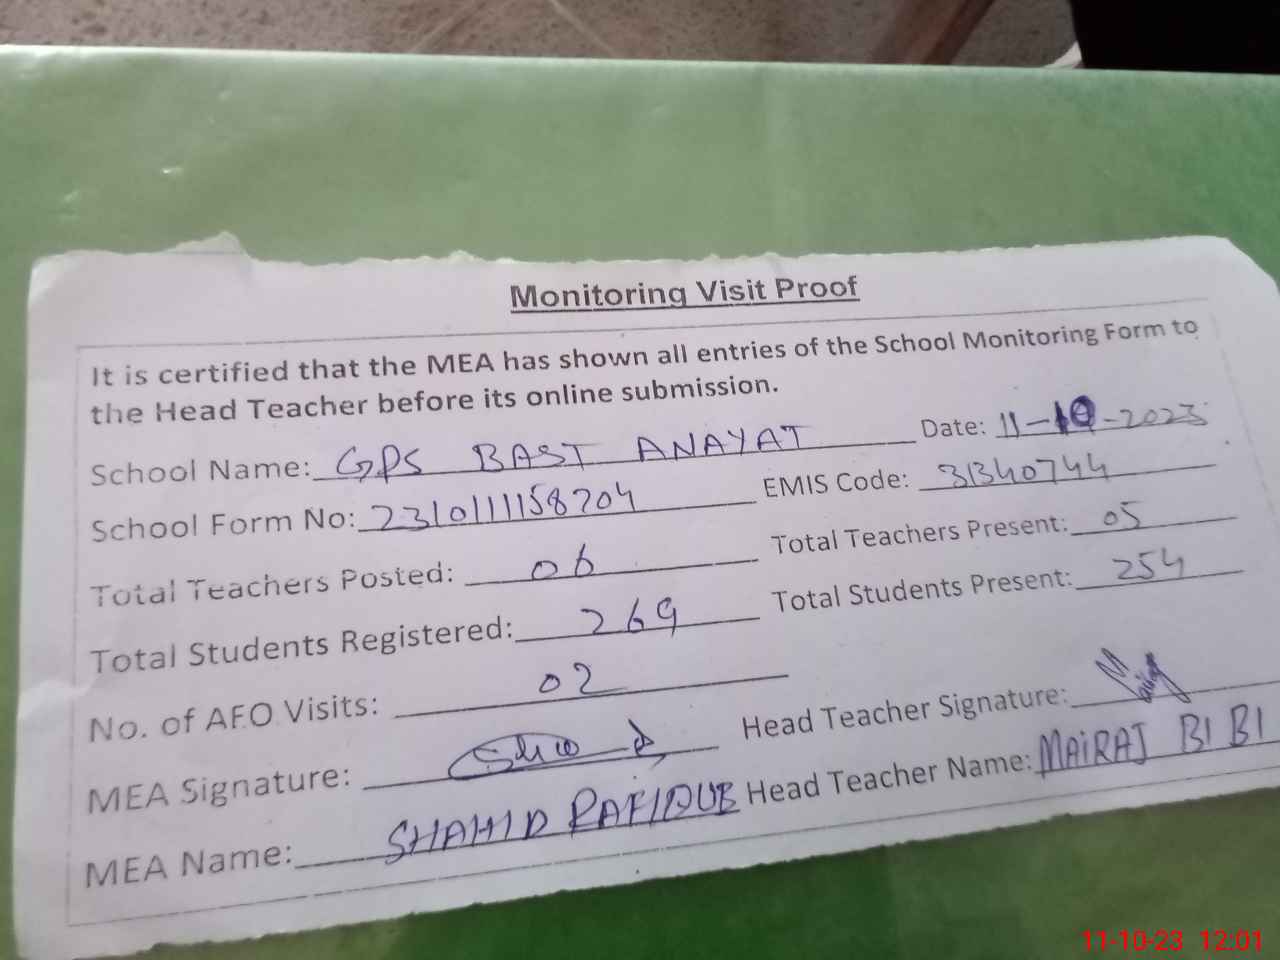 Monitoring Visit Proof
It is certified that the MEA has shown all entries of the School Monitoring Form to
the Head Teacher before its online submission.
School Name: GPS BAST ANAYAT Date: 11-10-2023
School Form No: 2310111158704 EMIS Code: 31340744
Total Teachers Posted: 06 Total Teachers Present: 05
Total Students Registered: 269 Total Students Present: 254
No. of AEO Visits: 02
MEA Signature: Head Teacher Signature:
MEA Name: SHAHID RAFIQUE Head Teacher Name: MAIRAJ BIBI
11-10-23 12:01